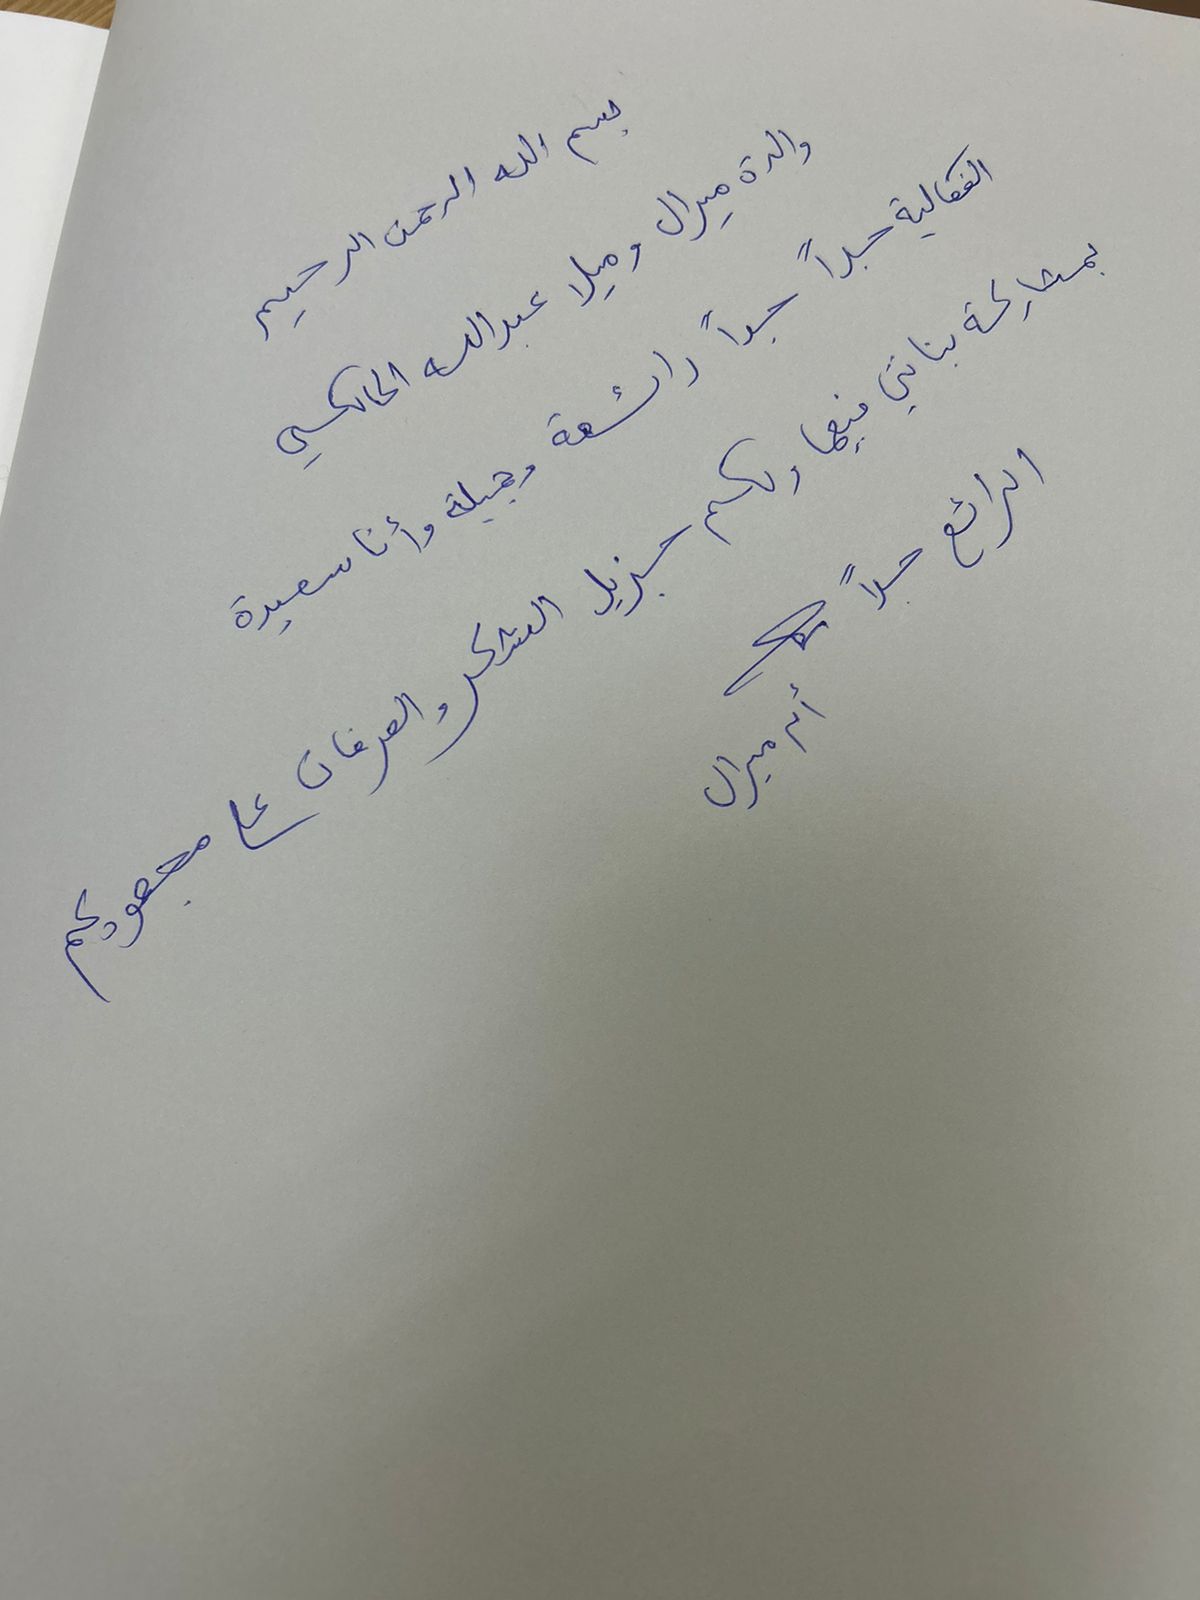 بسم الله الرحمن الرحيم
والدة ميرال وميلا عبدالله المالكي
الفعالية جداً جداً رائعة وجميلة وأنا سعيدة
بمشاركة بناتي فيها ولكم جزيل الشكر والعرفان على مجهودكم
الرائع جداً
أم ميرال